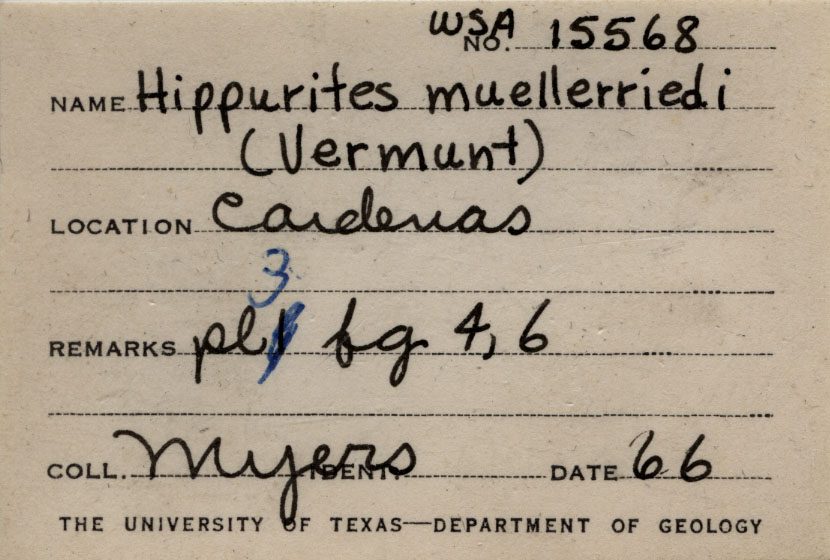 WSA
NO. 15568
NAME Hippurites muellerriedi
(Vermunt)
LOCATION Cardenas
3
REMARKS pl fg 4, 6
COLL. Myers IDENT. DATE 66
THE UNIVERSITY OF TEXAS—DEPARTMENT OF GEOLOGY